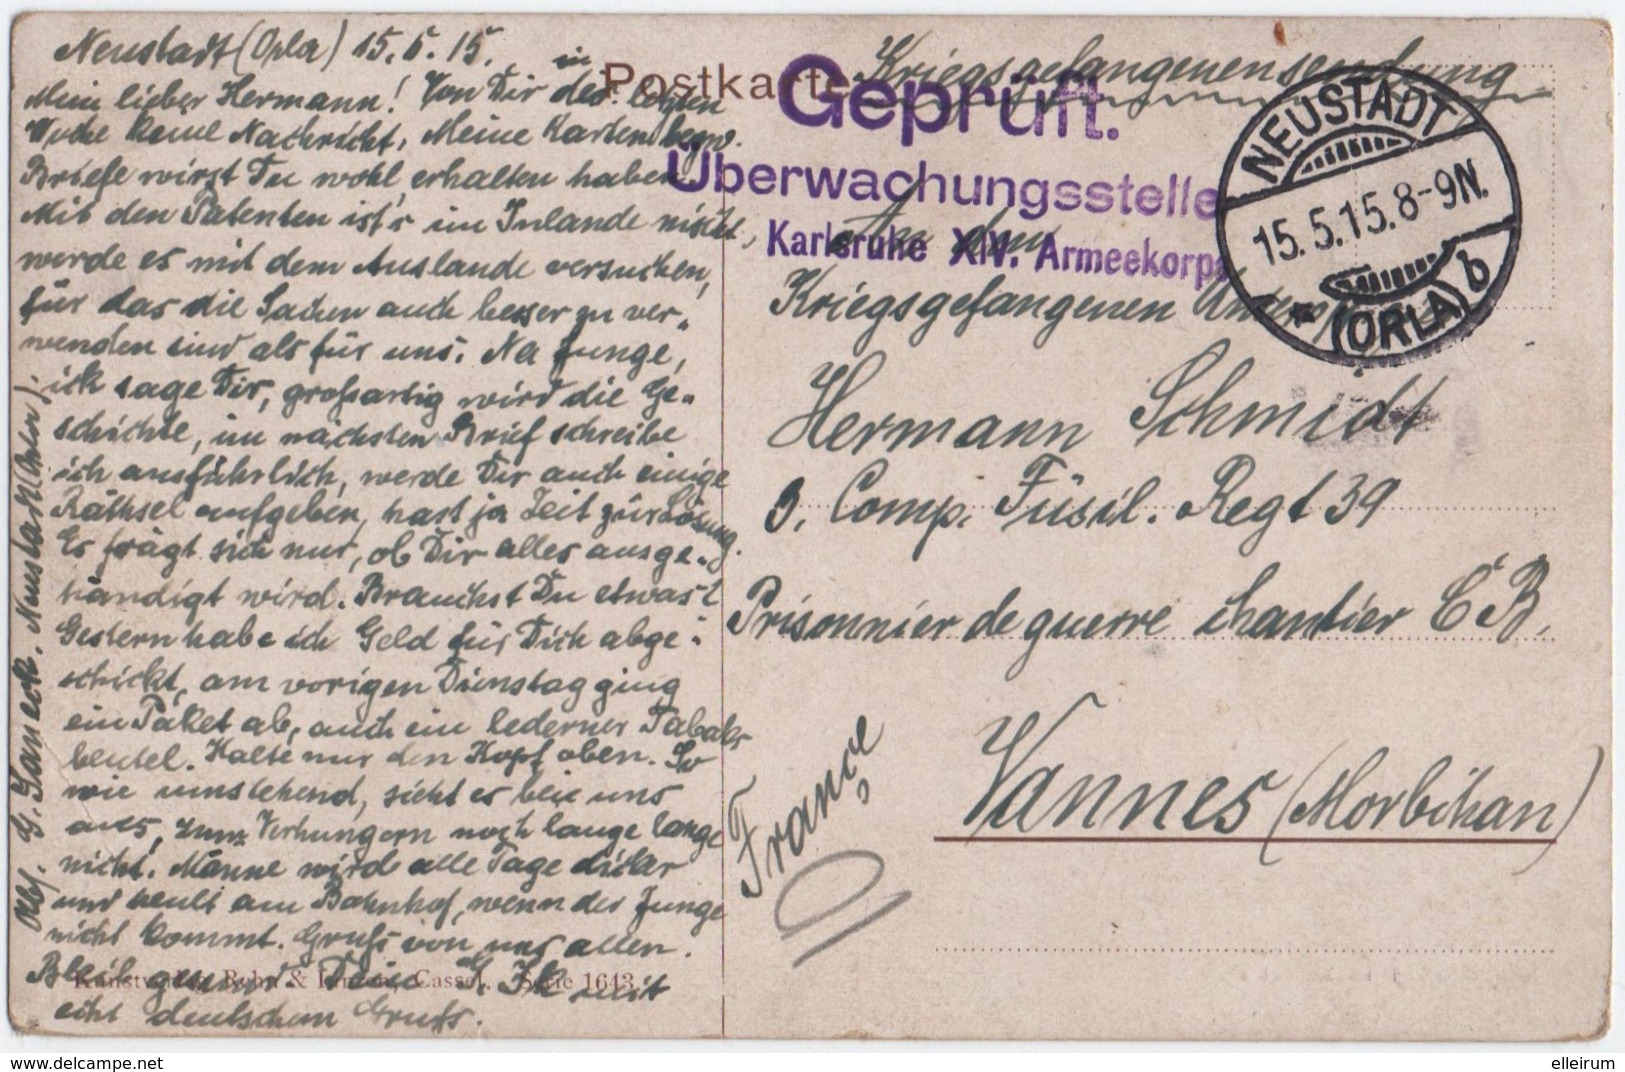 Neustadt (Orla) 15.5.15.
Mein lieber Hermann! Von Dir in der letzten
Woche keine Nachricht, Meine Karten bezw.
Briefe wirst Du wohl erhalten haben.
Mit den Patenten ist's im Inlande nicht,
werde es mit dem Auslande versuchen,
für das die Sachen auch besser zu ver-
wenden sind als für uns. Na Junge,
ich sage Dir, großartig wird die Ge-
schichte, im nächsten Brief schreibe
ich ausführlich, werde Dir auch einige
Räthsel aufgeben, hast ja Zeit zur Lösung.
Es frägt sich nur, ob Dir alles ausge-
händigt wird. Brauchst Du etwas?
Gestern habe ich Geld für Dich abge-
schickt, am vorigen Dienstag ging
ein Paket ab, auch ein lederner Tabaks
beutel. Halte nur den Kopf oben. So
wie umstehend, sieht es bei uns
aus, zum Verhungern noch lange lange
nicht. Männe wird alle Tage dicker
und heult am Bahnhof, wenn der Junge
nicht kommt. Gruß von uns allen.
Bleib gesund. Deine
echt deutschem Gruß.
Abs. G. Janeck. Neustadt (Orla).
Postkarte
Kriegsgefangenensendung
Geprüft.
Überwachungsstelle
Karlsruhe XIV. Armeekorps
NEUSTADT
15.5.15.8-9N.
* (ORLA) b
An den
Kriegsgefangenen
Hermann Schmidt
Comp. Füsil. Regt 39
Prisonnier de guerre chantier C B,
Vannes (Morbihan)
France
Kunstverlag & Cassel. Serie 1643.
www.delcampe.net
elleirum